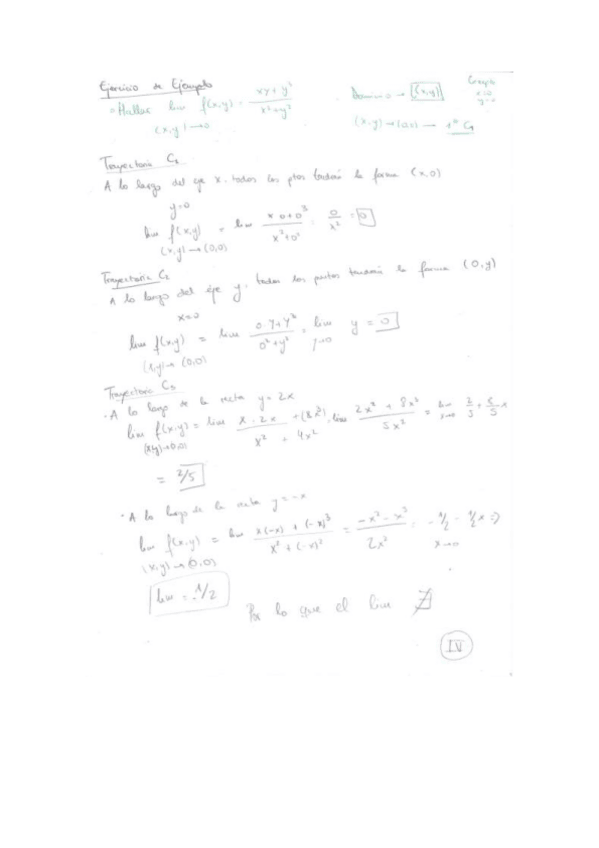 Ejercicio de Ejemplo
Hallar lim f(x,y) = xy + y³ / x² + y²
(x,y) → 0
Dominio → (x,y)
x=0
y=0
(x,y) → (0,0) →
Trayectoria C₁
A lo largo del eje x. todos los ptos tendrán la forma (x,0)
y=0
lim f(x,y) = lim x·0+0³ / x²+0² = 0 / x² = 0
(x,y) → (0,0)
Trayectoria C₂
A lo largo del eje y. todos los puntos tendrán la forma (0,y)
x=0
lim f(x,y) = lim 0·y+y³ / 0²+y² = lim y = 0
(x,y) → (0,0) y→0
Trayectoria C₃
·A lo largo de la recta y=2x
lim f(x,y) = lim x·2x + (8x³) / x² + 4x² = lim 2x² + 8x³ / 5x² = lim 2/5 + 8/5 x
(x,y)→(0,0) x→0
= 2/5
·A lo largo de la recta y=-x
lim f(x,y) = lim x(-x) + (-x)³ / x² + (-x)² = -x² - x³ / 2x² = -1/2 - 1/2 x ⇒
(x,y) → (0,0) x→0
lim = -1/2
Por lo que el lim ∄
IV